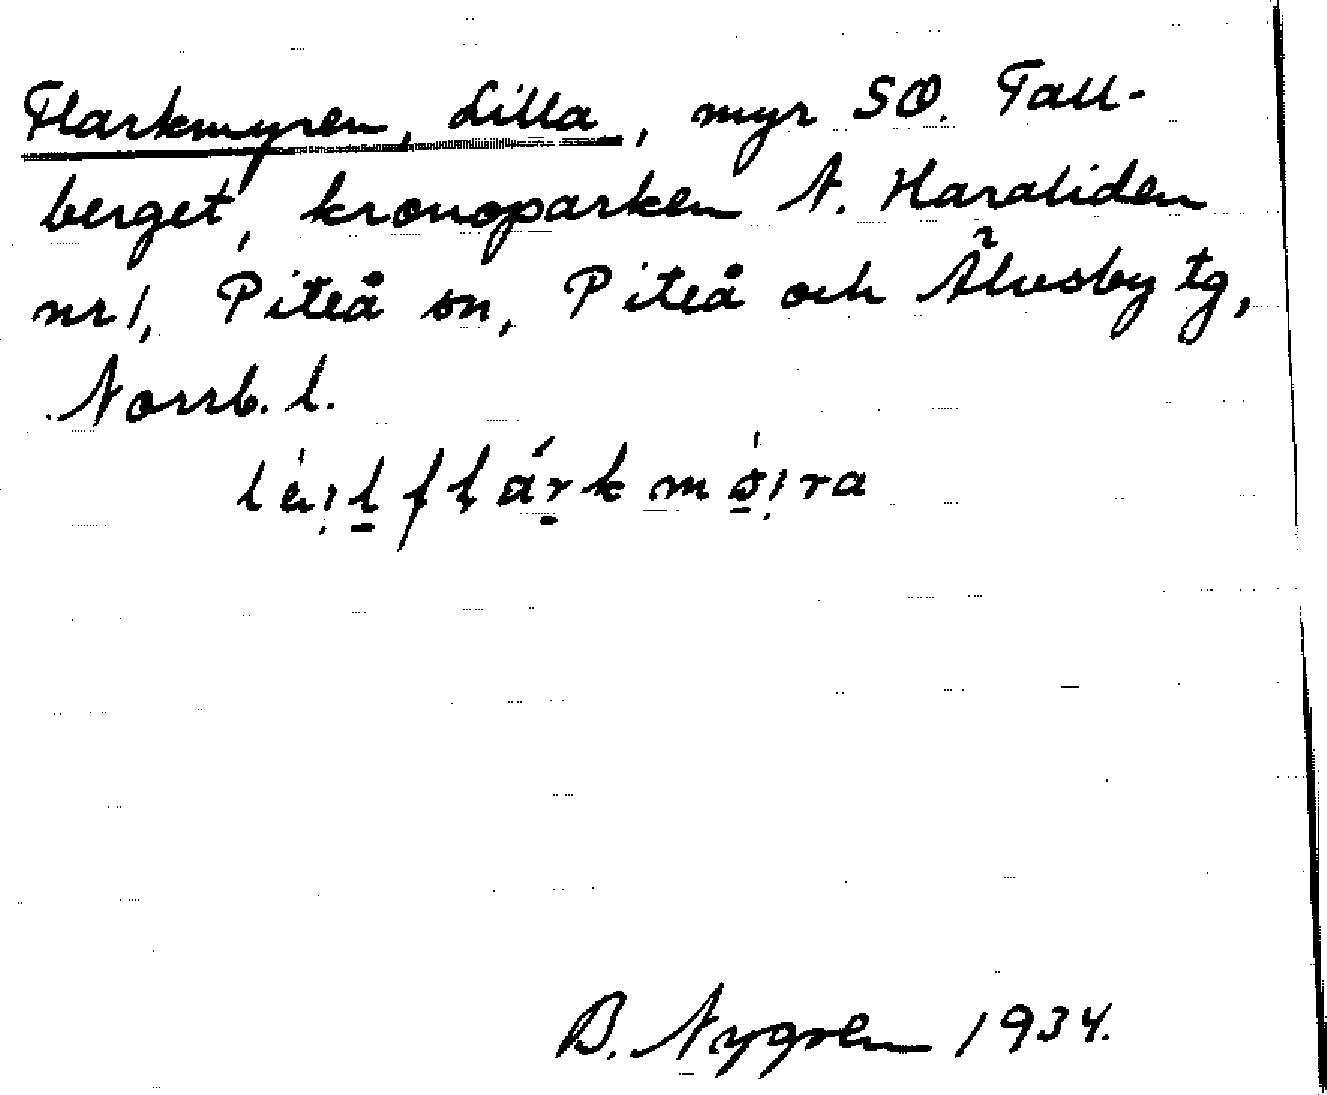 Flarkmyren, Lilla, myr SO. Tall-
berget, kronoparken N. Haraliden
nr 1, Piteå sn, Piteå och Älvsby tg,
Norrb. l.
B. Nygren 1934.